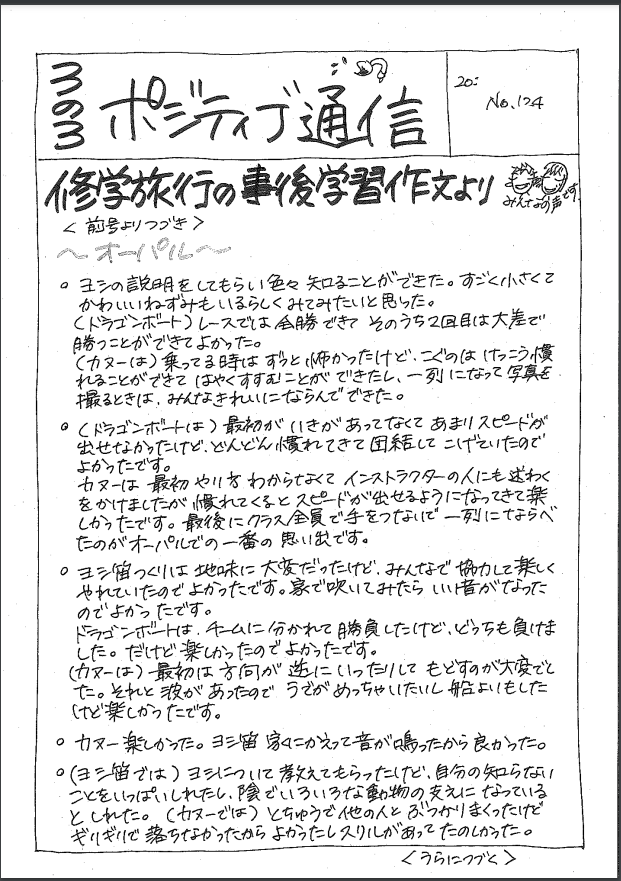 3の3
ポジティブ通信
20:
No.124
修学旅行の事後学習作文より
みんなの声です。
＜前号よりつづき＞
～オーパル～
○ ヨシの説明をしてもらい色々知ることができた。すごく小さくて
かわいいねずみもいるらしくみてみたいと思った。
(ドラゴンボート)レースでは全勝できてそのうち2回目は大差で
勝つことができてよかった。
(カヌーは)乗ってる時はずっと怖かったけど、こぐのはけっこう慣
れることができてはやくすすむことができたし、一列になって写真を
撮るときは、みんなきれいにならんでできた。
○ (ドラゴンボートは)最初がいきがあってなくてあまりスピードが
出せなかったけど、どんどん慣れてきて団結してこげていたので
よかったです。
カヌーは最初やり方わからなくてインストラクターの人にも迷わく
をかけましたが慣れてくるとスピードが出せるようになってきて楽
しかったです。最後にクラス全員で手をつないで一列にならべ
たのがオーパルでの一番の思い出です。
○ ヨシ笛つくりは地味に大変だったけど、みんなで協力して楽しく
やれていたのでよかったです。家で吹いてみたらいい音がなった
のでよかったです。
ドラゴンボートは、チームに分かれて勝負したけど、どっちも負けま
した。だけど楽しかったのでよかったです。
(カヌーは)最初は方向が逆にいったりしてもどすのが大変でし
た。それと波があったのでうでがめっちゃいたいし船よいもした
けど楽しかったです。
○ カヌー楽しかった。ヨシ笛家にかえって音が鳴ったから良かった。
○ (ヨシ笛では)ヨシについて教えてもらったけど、自分の知らない
ことをいっぱいしれたし、陰でいろいろな動物の支えになっている
としれた。(カヌーでは)とちゅうで他の人とぶつかりまくったけど
ギリギリで落ちなかったからよかったしスリルがあってたのしかった。
＜うらにつづく＞